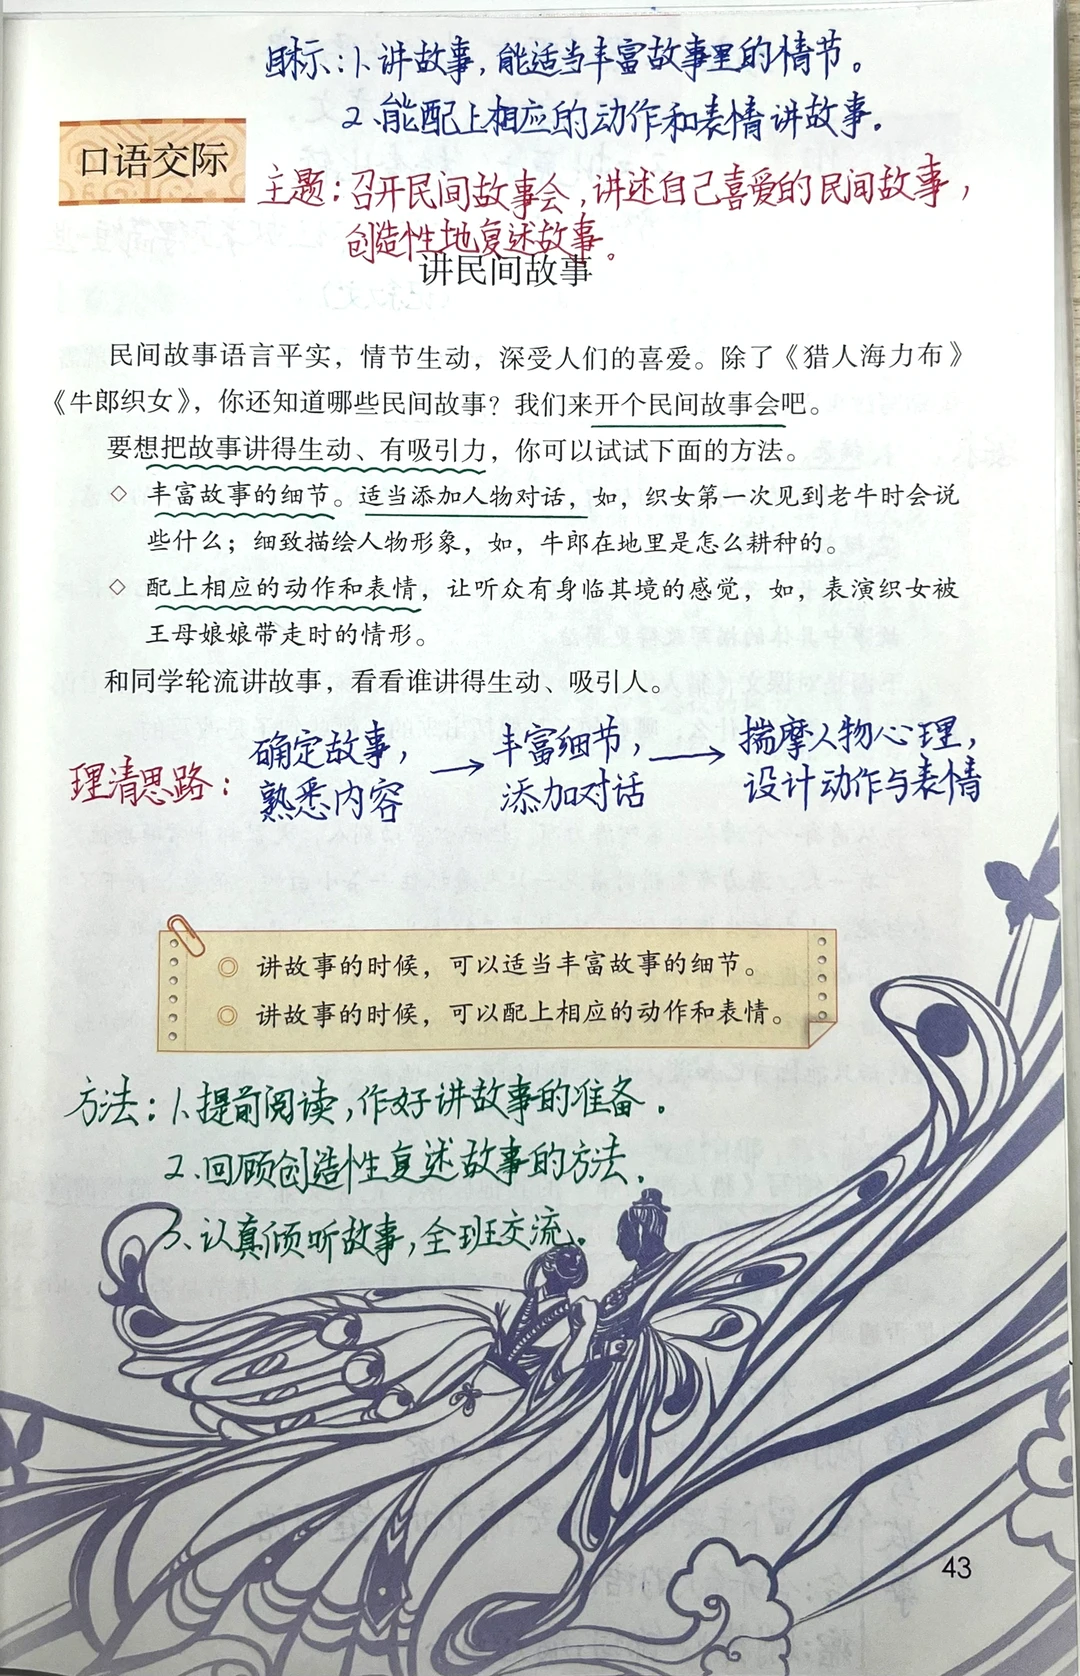 目标：1、讲故事，能适当丰富故事里的情节。
2、能配上相应的动作和表情讲故事。
口语交际
主题：召开民间故事会，讲述自己喜爱的民间故事，
创造性地复述故事。
讲民间故事
民间故事语言平实，情节生动，深受人们的喜爱。除了《猎人海力布》
《牛郎织女》，你还知道哪些民间故事？我们来开个民间故事会吧。
要想把故事讲得生动、有吸引力，你可以试试下面的方法。
◇ 丰富故事的细节。适当添加人物对话，如，织女第一次见到老牛时会说
些什么；细致描绘人物形象，如，牛郎在地里是怎么耕种的。
◇ 配上相应的动作和表情，让听众有身临其境的感觉，如，表演织女被
王母娘娘带走时的情形。
和同学轮流讲故事，看看谁讲得生动、吸引人。
理清思路：确定故事，熟悉内容 → 丰富细节，添加对话 → 揣摩人物心理，设计动作与表情
◎ 讲故事的时候，可以适当丰富故事的细节。
◎ 讲故事的时候，可以配上相应的动作和表情。
方法：1、提前阅读，作好讲故事的准备。
2、回顾创造性复述故事的方法。
3、认真倾听故事，全班交流。
43